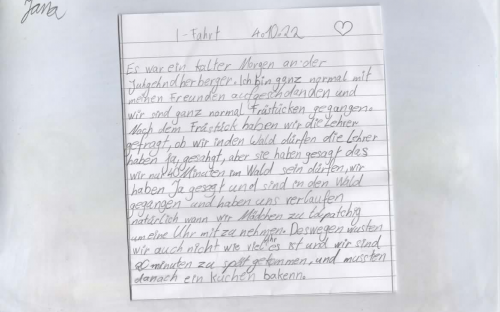 Jana
I-Fahrt 4.10.22
Es war ein kalter Morgen an der
Jugehndherberger. Ich bin ganz normal mit
meinen Freunden aufgeschdanden und
wir sind ganz normal Früstücken gegangen.
Nach dem Früstück haben wir die Lehrer
gefragt, ob wir in den Wald dürfen die Lehrer
haben Ja, gesahgt, aber sie haben gesagt das
wir nur 40 Minuten im Wald sein dürfen, wir
haben Ja gesagt und sind in den Wald
gegangen und haben uns verlaufen
natürlich wann wir Mädchen zu
um eine Uhr mit zu nehmen. Deswegen wusten
wir auch nicht wie viel Uhr es ist und wir sind
minuten zu spät gekommen, und mussten
danach ein kuchen baken.